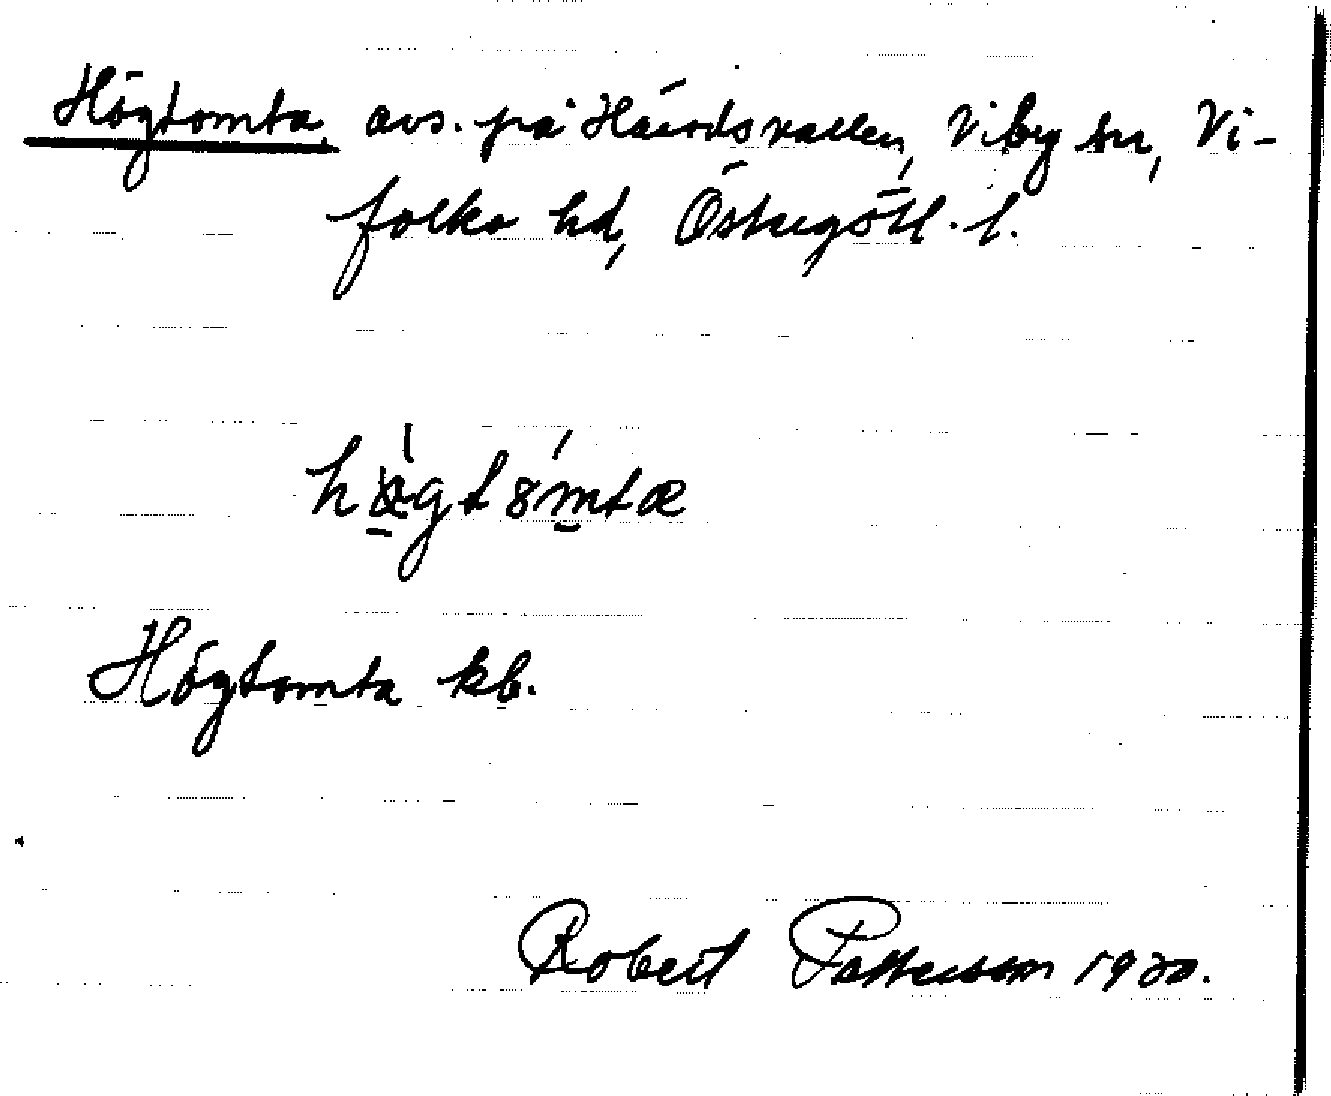 Högtomta, avs. på Håirdsvallen, Viby sn, Vi-
folka hd, Östergötl. l.
hǿgtómtæ
Högtomta kb.
Robert Pettersson 1920.